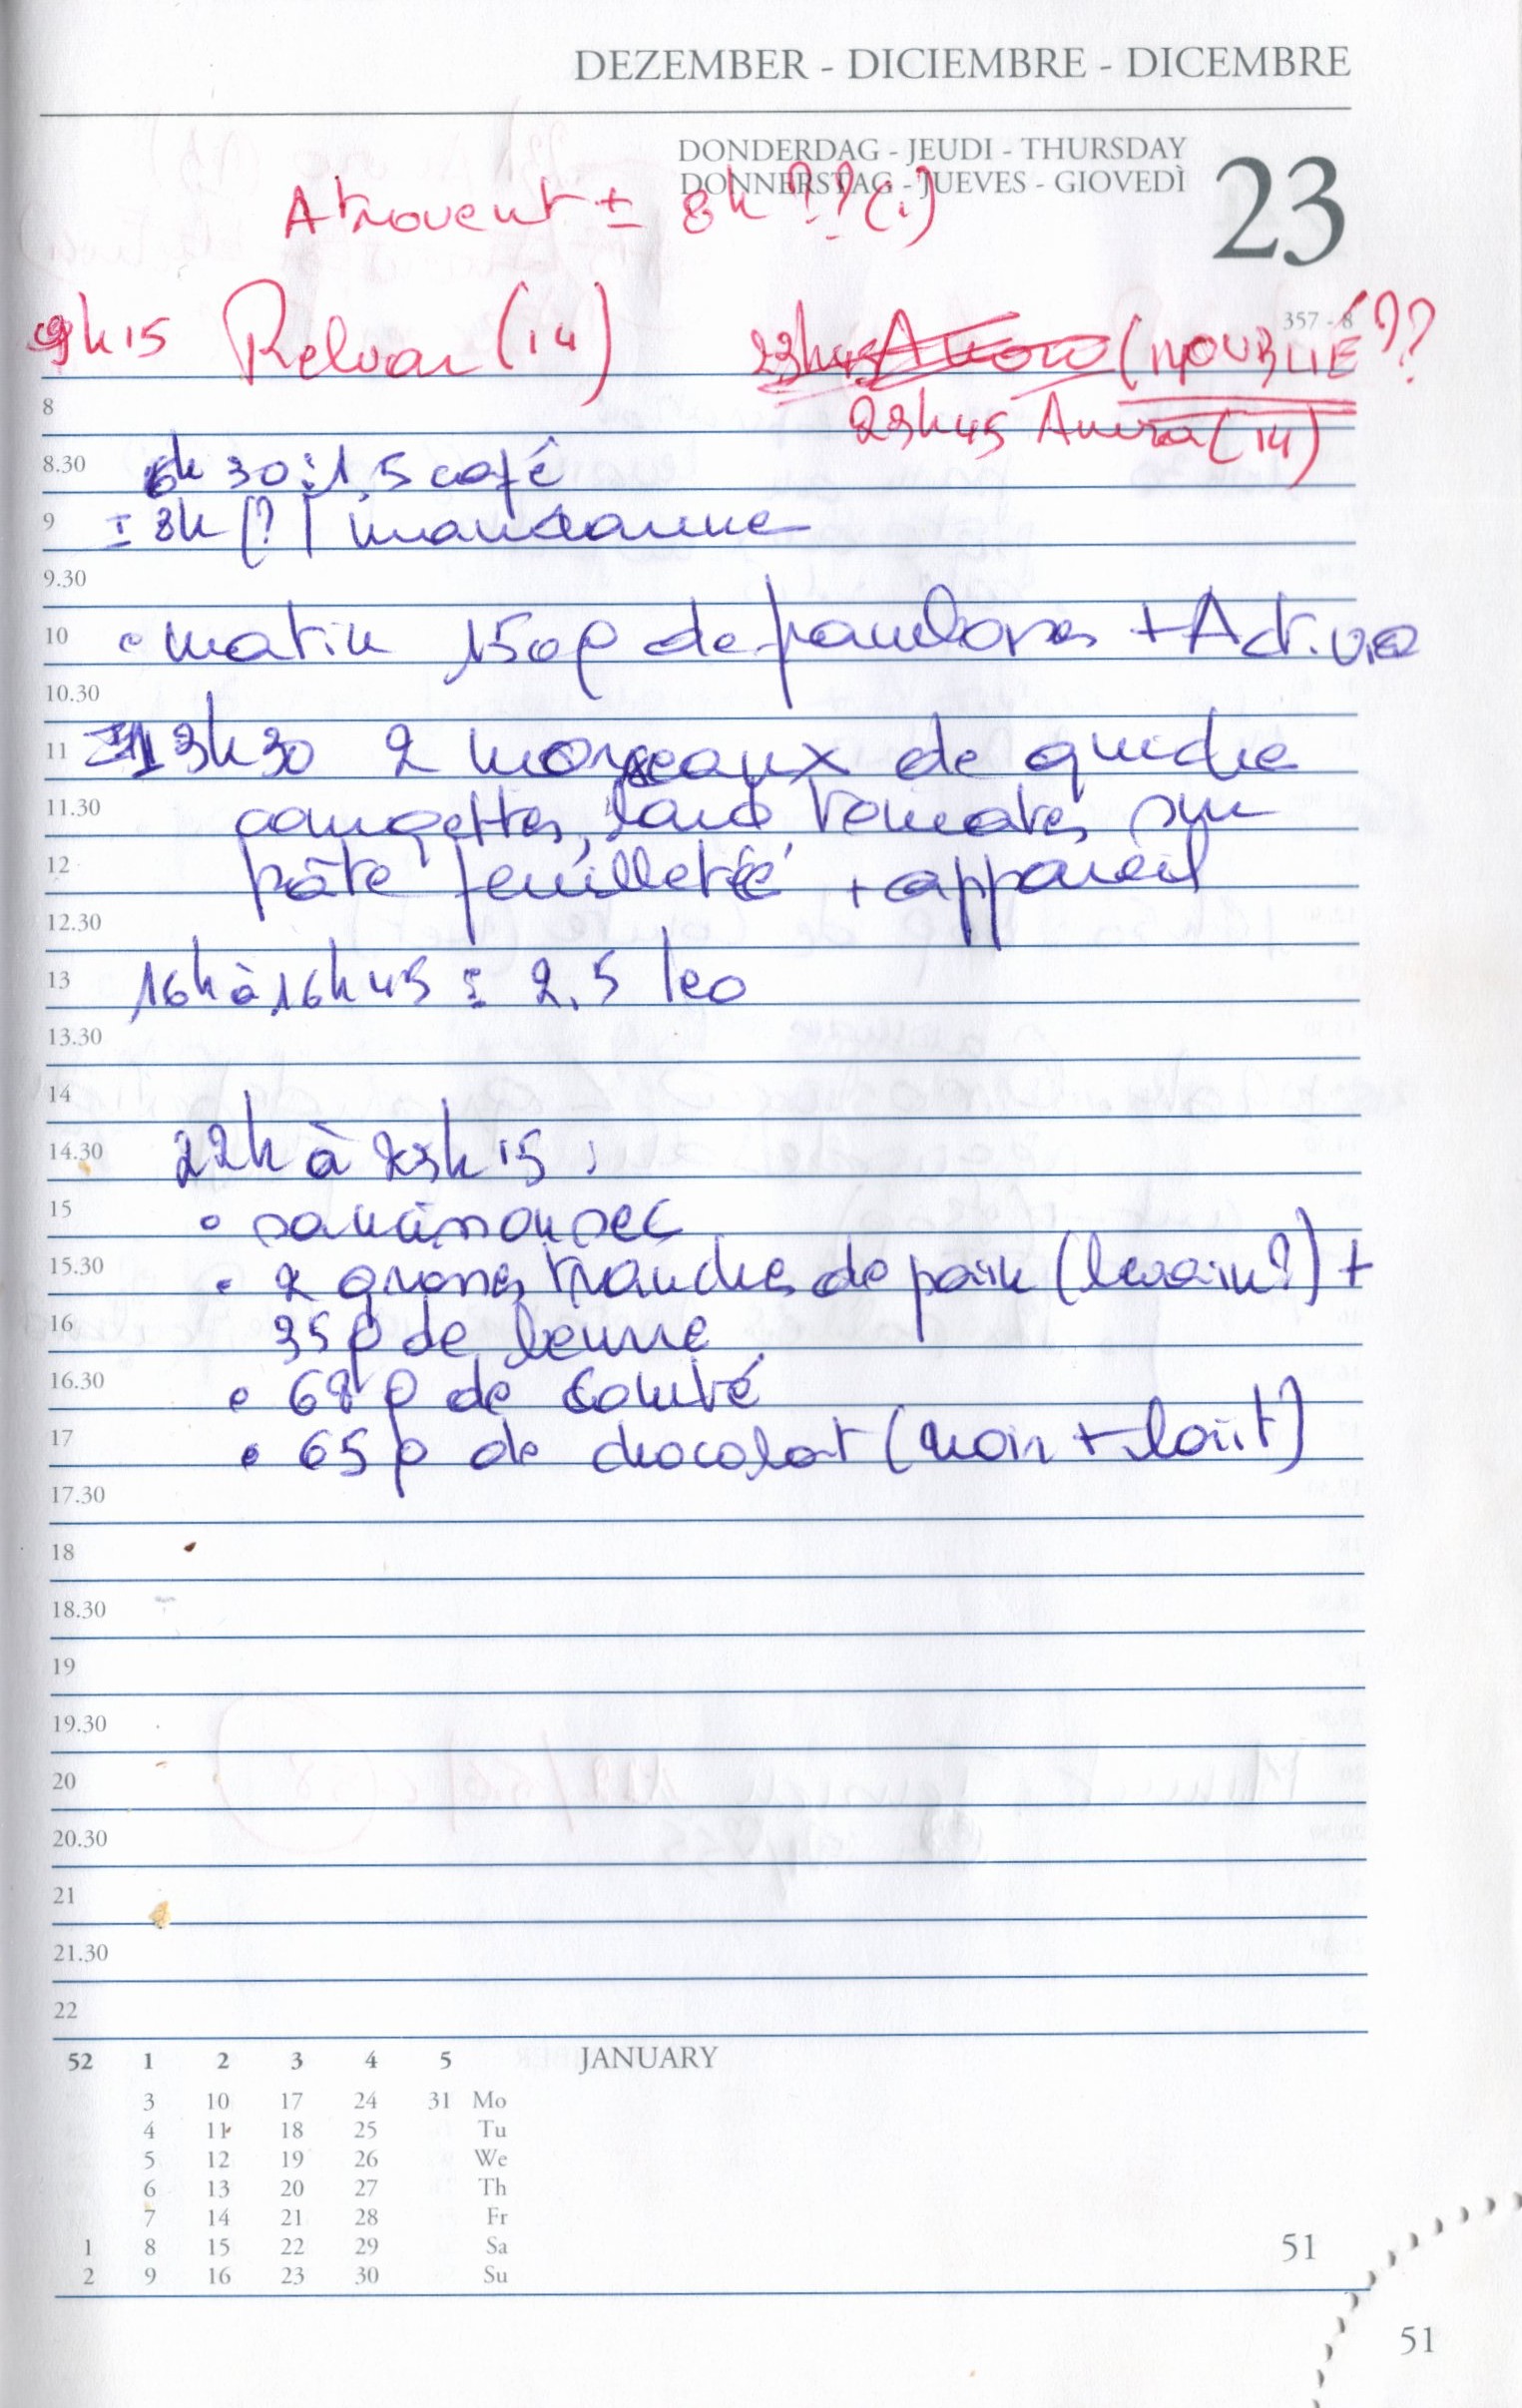 DEZEMBER - DICIEMBRE - DICEMBRE
DONDERDAG - JEUDI - THURSDAY
DONNERSTAG - JUEVES - GIOVEDÌ
23
Atrovent ± 8h ??(.)
357 - 8
9h15 Relvar (14) 23h45 (noublié??
23h45 (14)
8
8.30 6h30 : 1,5 café
9 ± 8h (?) mandarine
9.30
10 • matin 150g de + Activia
10.30
11 13h30 2 morceaux de quiche
11.30 courgettes, lard tomates sur
12 pâte feuilletée + appareil
12.30
13 16h à 16h45 : 2,5 leo
13.30
14
14.30 22h à 23h15 :
15 • saucisson sec
15.30 • 2 grosses tranches de pain (levain?) +
16 35g de beurre
16.30 • 68g de comté
17 • 65g de chocolat (noir + lait)
17.30
18
18.30
19
19.30
20
20.30
21
21.30
22
52 1 2 3 4 5 JANUARY
3 10 17 24 31 Mo
4 11 18 25 Tu
5 12 19 26 We
6 13 20 27 Th
7 14 21 28 Fr
1 8 15 22 29 Sa
2 9 16 23 30 Su
51
51